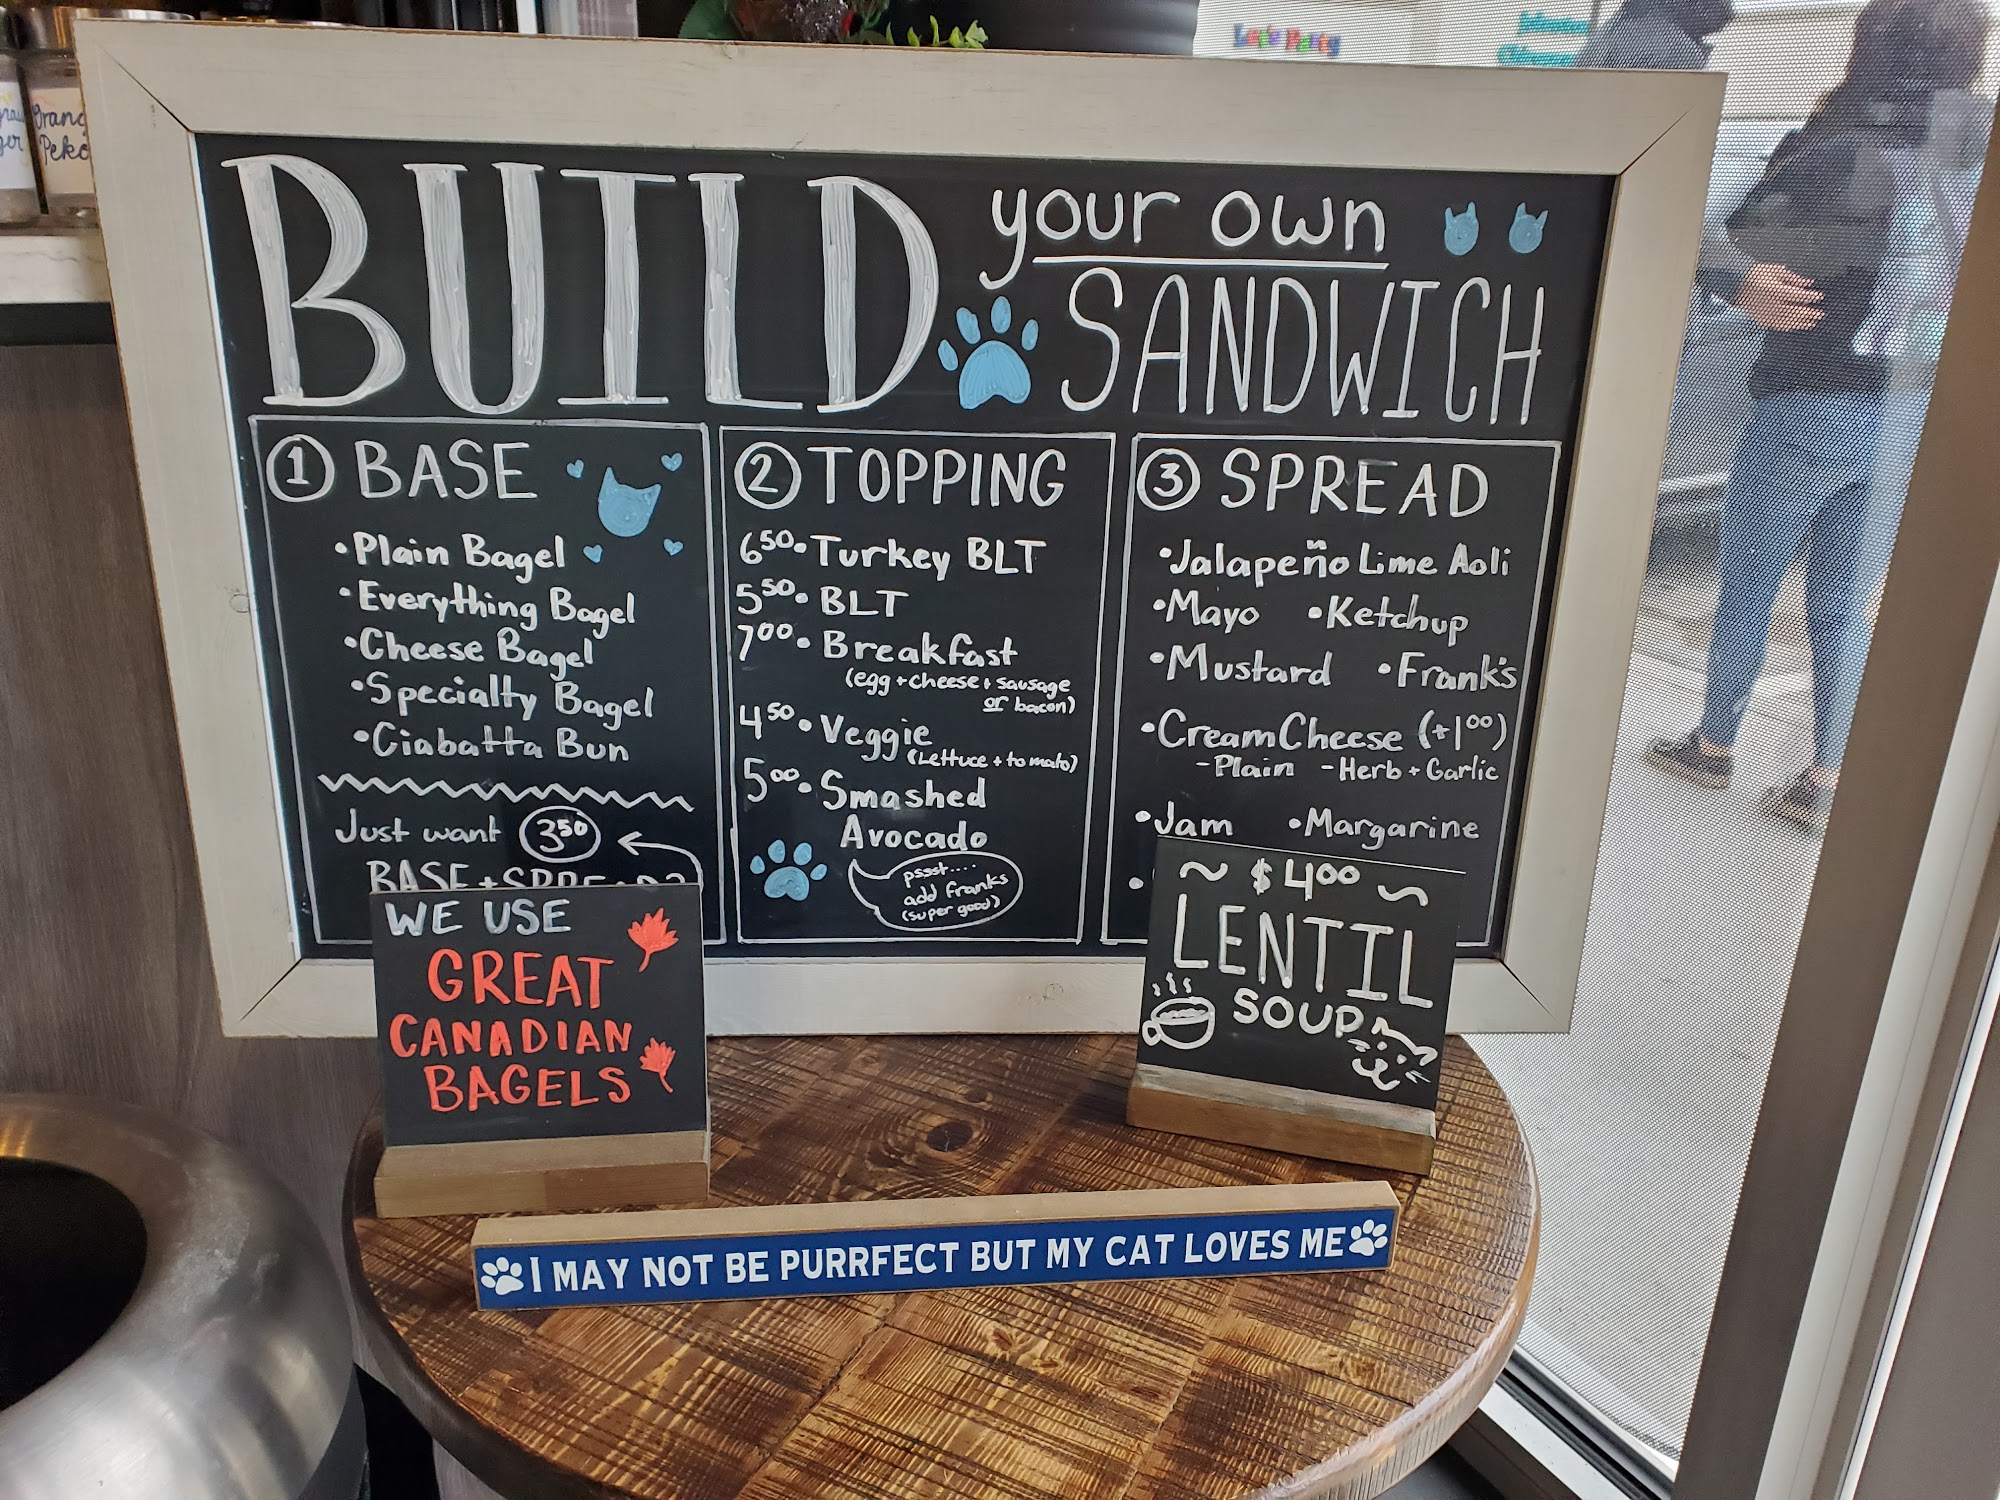 BUILD
your own
SANDWICH
1 BASE
•Plain Bagel
•Everything Bagel
•Cheese Bagel
•Specialty Bagel
•Ciabatta Bun
Just want 3.50
BASE + SPREAD?
2 TOPPING
6.50•Turkey BLT
5.50•BLT
7.00•Breakfast
(egg + cheese + sausage
or bacon)
4.50•Veggie
(Lettuce + tomato)
5.00•Smashed
Avocado
pssst....
add franks
(super good)
3 SPREAD
•Jalapeño Lime Aoli
•Mayo •Ketchup
•Mustard •Frank's
•Cream Cheese (+1.00)
-Plain -Herb + Garlic
•Jam •Margarine
WE USE
GREAT
CANADIAN
BAGELS
~ $4.00 ~
LENTIL
SOUP
I MAY NOT BE PURRFECT BUT MY CAT LOVES ME
Let's Party